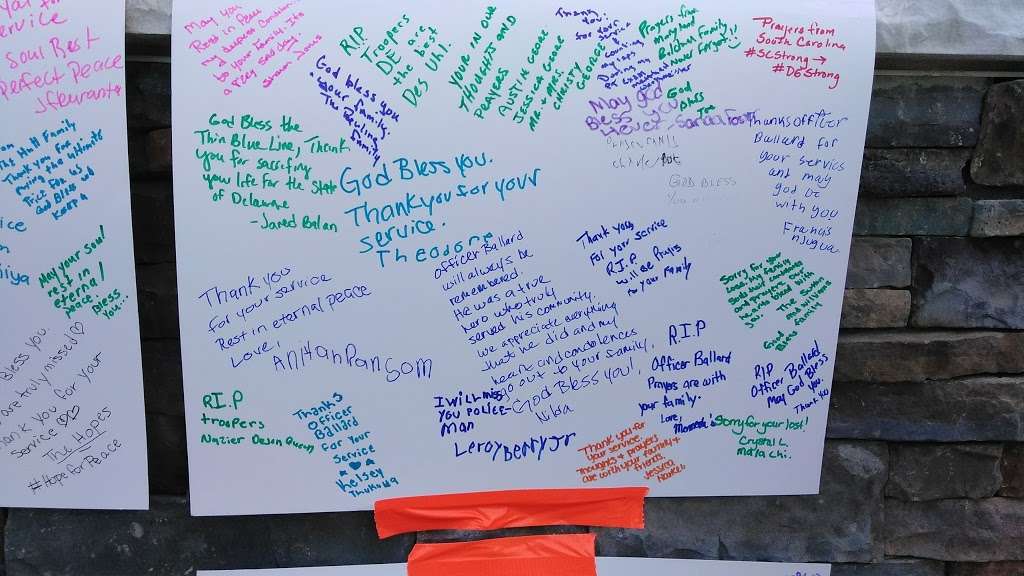 service
Soul Rest
Perfect Peace
The Hutt Family
Thank you for
paying the ultimate
Price For us
God Bless
May your soul
rest in
eternal
peace.
Bless
you...
Bless you.
are truly missed
Thank you for your
service
The Hopes
#HopeforPeace
May you
Rest in Peace
my deepest Condolences
to your family. It's
a very sad day.
Shawn Jones
R.I.P.
Troopers
DE are
the best
Des Uhl.
God bless you
Your family.
The Rawlings
family
YOUR IN OUR
THOUGHTS AND
PRAYERS
AUSTIN GEORGE
JESSICA GEORGE
MR + MRS.
CHRISTY
GEORGE
Thank
You!
for your
service
Prayers from
Mary and
Belcher Family
Never Forget!
God
Bless
Prayers from
South Carolina
#SCStrong →
#DEStrong
May god
Bless you
4ever
God Bless the
Thin Blue Line, Thank
you for sacrificing
your life for the State
of Delaware
-Jared Balan
God Bless you.
Thank you for your
service.
Theodore
GOD BLESS
Thanks officer
Ballard for
your service
and may
god be
with you
Francis
Njugua
Thank you
for your service
Rest in eternal peace
Love,
AnitanPanSom
officer Ballard
will always be
remembered.
He was a true
hero who truly
served his community.
We appreciate everything
Just he did and my
heart and condolences
go out to your family.
God Bless you!
Niba
Thank you
For your service
R.I.P
will be Prays
for your Family
Sorry for your
God
Bless
R.I.P
troopers
Nazier Devon Quincy
Thanks
Officer
Ballard
For Your
Service
Kelsey
I will miss
you Police-
Man
Leroy Berry Jr
R.I.P
Officer Ballard
Prayes are with
your family.
Love,
Thank you for
your service
Thoughts + prayers
are with your family +
friends.
Jessica
RIP
Officer Ballard
May God Bless
You.
Thank you
Sorry for your lost!
Crystal L.
Malachi.